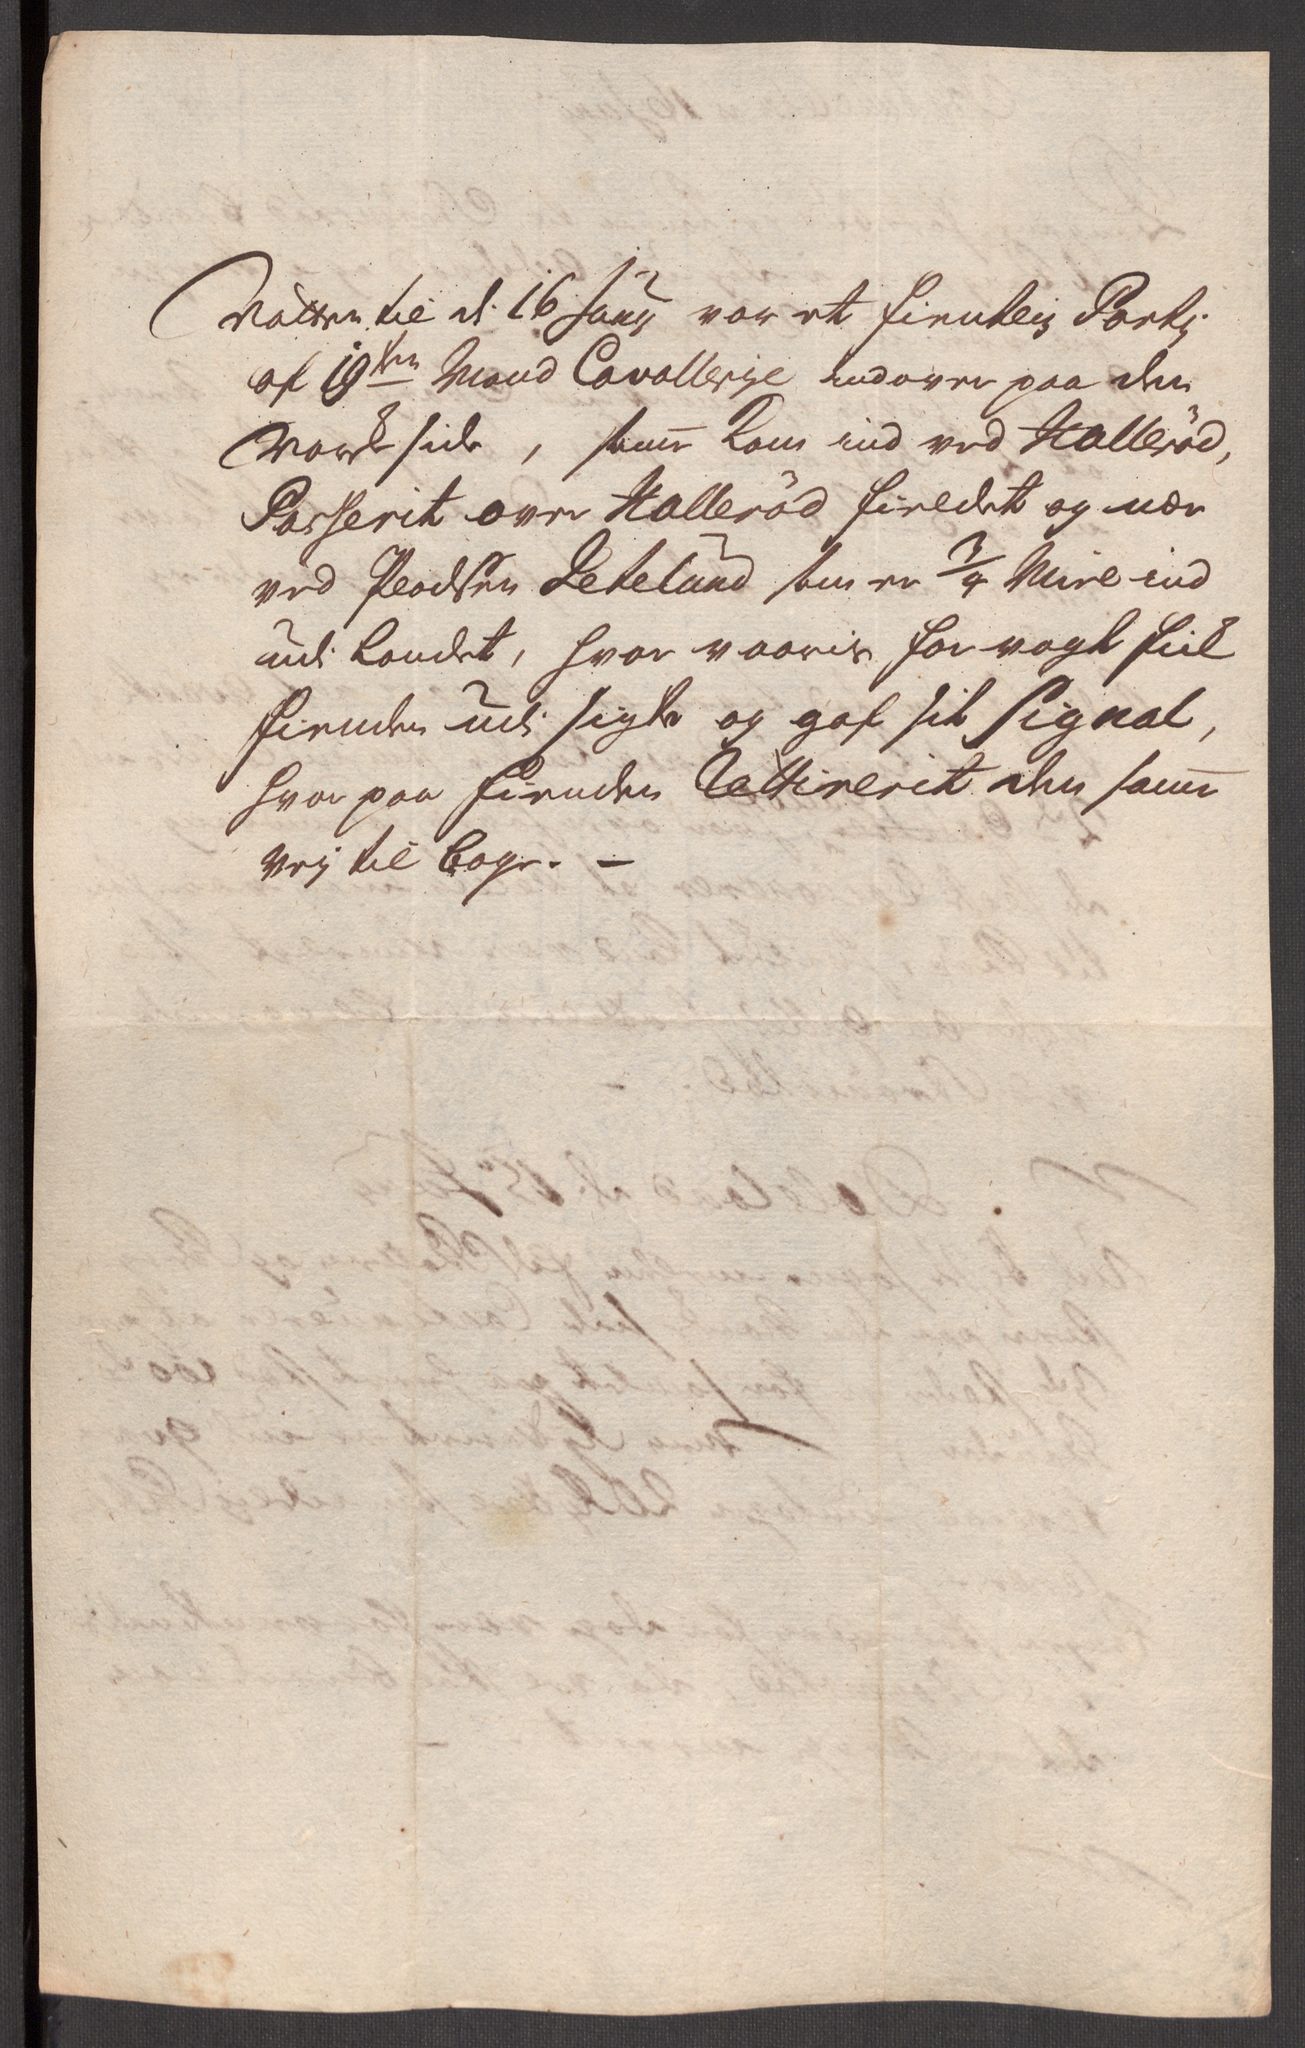 Natten til d: 16 Janv var et fiendtlig Partj
af 19ten Mand Cavallerije indover paa den
Norske side, som kom ind ved Hallerød,
Passerit over Hallerød fieldet og nær
ved Pladsen Letelund som er 3/4 Miil ind
udi Landet, hvor voaris for vagt fik
fienden udi sigte og gaf sit Signal,
hvor paa fienden Rettirerit den samme
vej til bage. —